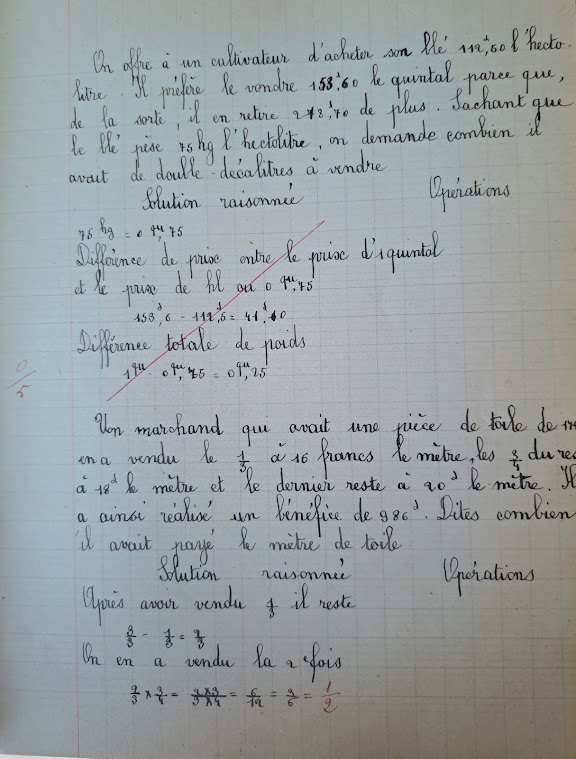 On offre à un cultivateur d'acheter son blé 112f,50 l'hecto-
litre. Il préfère le vendre 153f,60 le quintal parce que,
de la sorte, il en retire 278f,70 de plus. Sachant que
le blé pèse 75 kg l'hectolitre, on demande combien il
avait de double-décalitres à vendre
Solution raisonnée Opérations
75 kg = 0 qu,75
Différence de prix entre le prix d'1 quintal
et le prix de hl ou 0 qu,75
153f,6 - 112f,5 = 41f,10
Différence totale de poids
1 qu - 0 qu,75 = 0 qu,25
0/5
Un marchand qui avait une pièce de toile de
en a vendu le 1/3 à 16 francs le mètre, les 3/4 du res
à 18f le mètre et le dernier reste à 20f le mètre. Il
a ainsi réalisé un bénéfice de 986f. Dites combien
il avait payé le mètre de toile
Solution raisonnée Opérations
Après avoir vendu 1/3 il reste
3/3 - 1/3 = 2/3
On en a vendu la 2e fois
2/3 x 3/4 = 2x3/3x4 = 6/12 = 3/6 = 1/2